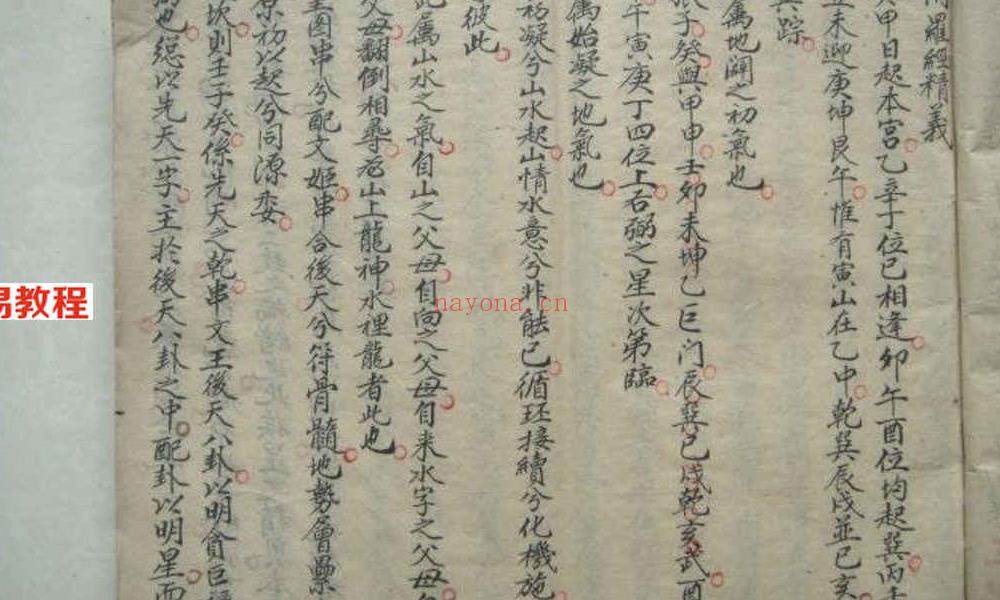 羅經精義
甲日起本宮乙辛丁位已相逢卯午酉位均起巽丙
未迎庚坤艮午惟有寅山在乙中乾巽辰戌並已亥
踪
屬地闢之初氣也
子癸與甲申壬卯未坤乙巨门辰巽巳戌乾亥武酉
午寅庚丁四位上右弼之星次第臨
為始凝之地氣也
初凝兮山水起山情水意兮非能已循环接續兮化機施
彼此
此属山水之氣自山之父母自向之父母自来水字之父母
父母翻倒相尋为山上龍神水裡龍者此也
圖串兮配文姬串合後天兮符骨髓地勢會
原初以起兮同源委
坎則壬子癸係先天之乾串文王後天八卦以明貪巨
也總以先天一字主於後天八卦之中配卦以明星而
易教程
nayona.cn